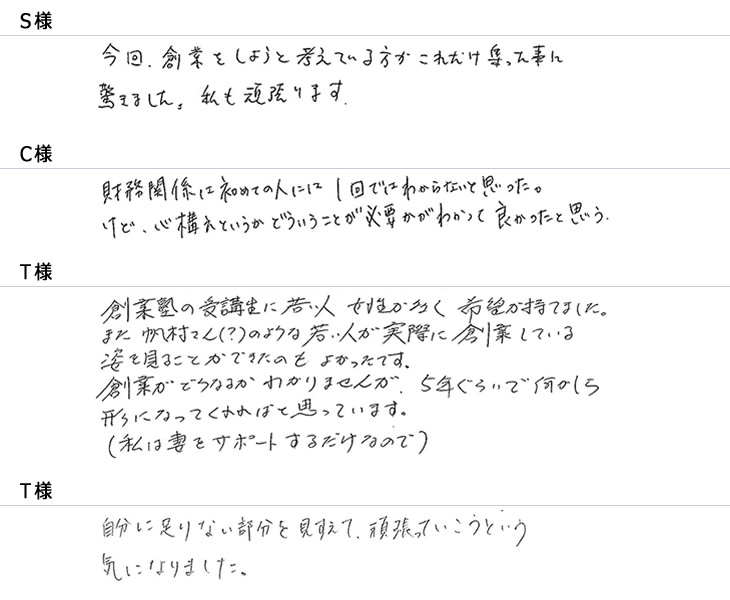 S様
今回、創業をしようと考えている方がこれだけ集った事に
驚きました。私も頑張ります。
C様
財務関係は初めての人には1回ではわからないと思った。
けど、心構えというかどういうことが必要かがわかって良かったと思う。
T様
創業塾の受講生に若い人 女性が多く 希望が持てました。
また 帆村さん(?)のような若い人が実際に創業している
姿を見ることができたのも よかったです。
創業がどうなるか わかりませんが、5年ぐらいで何かしら
形になってくれればと思っています。
(私は妻をサポートするだけなので)
T様
自分に足りない部分を見すえて、頑張っていこうという
気になりました。